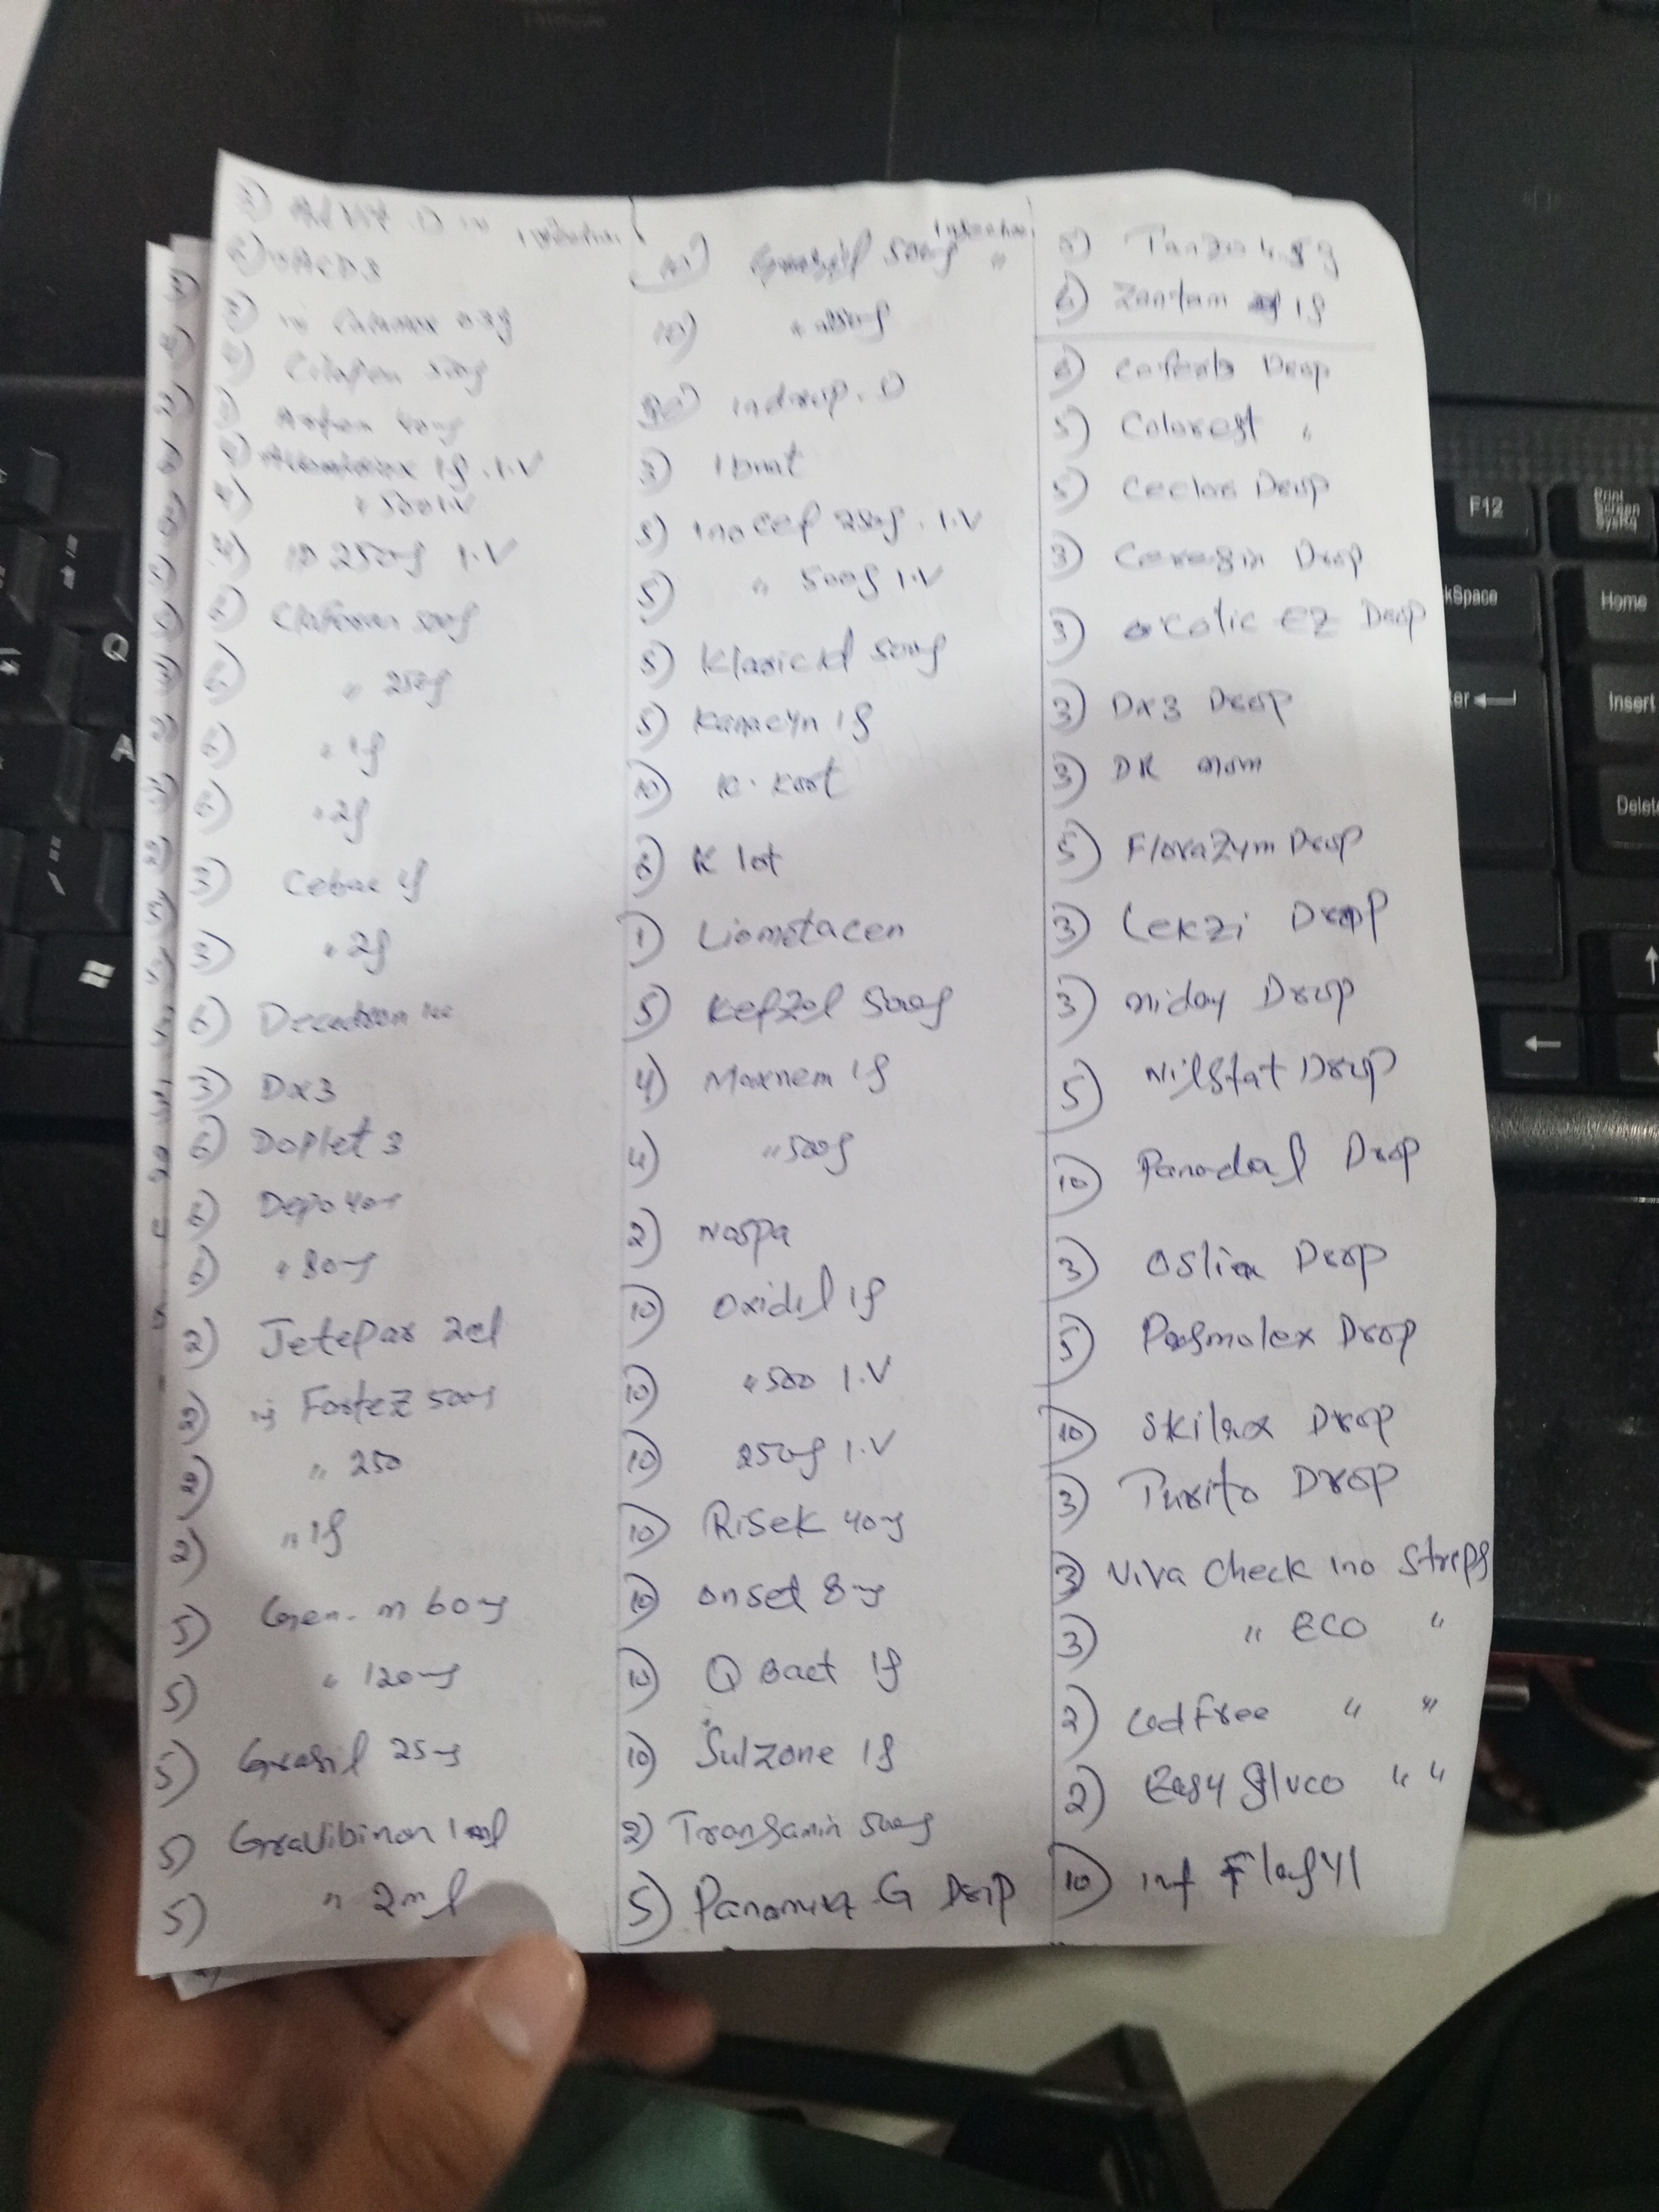 Injection
3) Calamox
4) Citafon 500g
1g . I.V
" 500 I.V
4) 250mg I.V
Claforan 500g
" 250g
" 1g
" 2g
3) Cebac 1g
3) " 2g
6) Decadron
3) Dx3
6) Doplet 3
6) Depo 40mg
6) " 80mg
2) Jetepar 2ml
2) inj Fortez 500mg
2) " 250
2) " 1g
5) Gen. m 60mg
5) " 120mg
5) Grasil 25mg
5) Gravibinon 1ml
5) " 2ml
10) Grasil 500g Injection
10) " 250mg
Indrop. D
3) Ibrut
5) Inocef 250g . I.V
5) " 500g I.V
5) Klaricid 500g
5) Kanacyn 1g
10) K. Kort
6) K lot
1) Liometacen
5) Kefzol 500g
4) Maxnem 1g
4) " 500g
2) Nospa
10) Oxidil 1g
10) " 500 I.V
10) 250g I.V
10) Risek 40mg
10) Onset 8mg
10) Q Bact 1g
10) Sulzone 1g
2) Transamin 500g
5) Panamix G Drip
5) Tanzo 4.5g
6) Zantam 1g
6) Coferb Drop
5) Colorest "
5) Ceclor Drop
3) Drop
3) colic EZ Drop
3) Dx3 Drop
3) DR mom
5) FloraZym Drop
3) Lekzi Drop
3) niday Drop
5) Nilstat Drop
10) Panadol Drop
3) Oslia Drop
5) Pasmolex Drop
10) Skilax Drop
3) Turito Drop
3) Viva Check Ino Strips
3) " ECO "
2) Codfree " "
2) Easy gluco " "
10) inf Flagyl